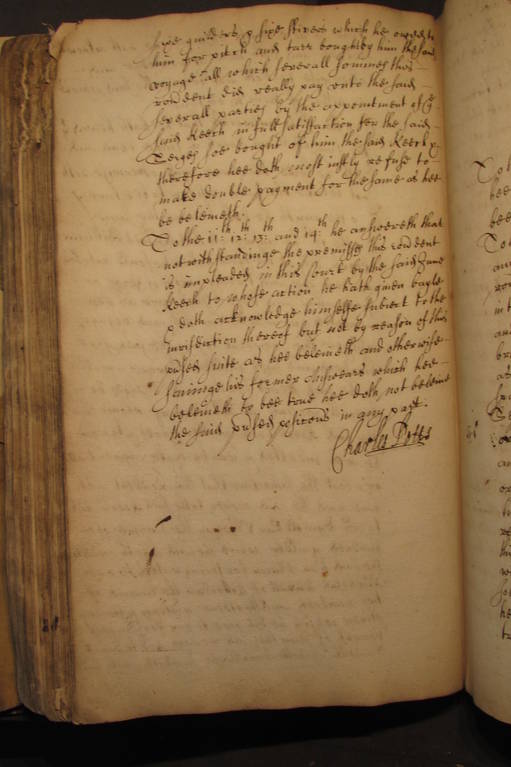 five guilders & sixe stivers which he owed to
him for pitch and tarr bought by him the said
voyage All which severall sommes this
rondent did really pay unto the said
severall parties by the appointment of the
said Keech in full satisfaction for the said
Serges soe bought of him the said Keech &
therefore hee doth most iustly refuse to
make double payment for the same as hee
beleeveth.
To the 11th: 12th: 13th: and 14th: he answereth that
notwithstandinge the premisses this rondent
is impleaded in this Court by the said
Keech to whose action he hath given bayle
& doth acknowledge himselfe subiect to the
iurisdiction thereof but not by reason of this
prtsed suite as hee beleeveth and otherwise
savinge his former Answears which hee
beleeveth to bee true hee doth not beleeve
the said prtsed positions in any part.
Charles Potts